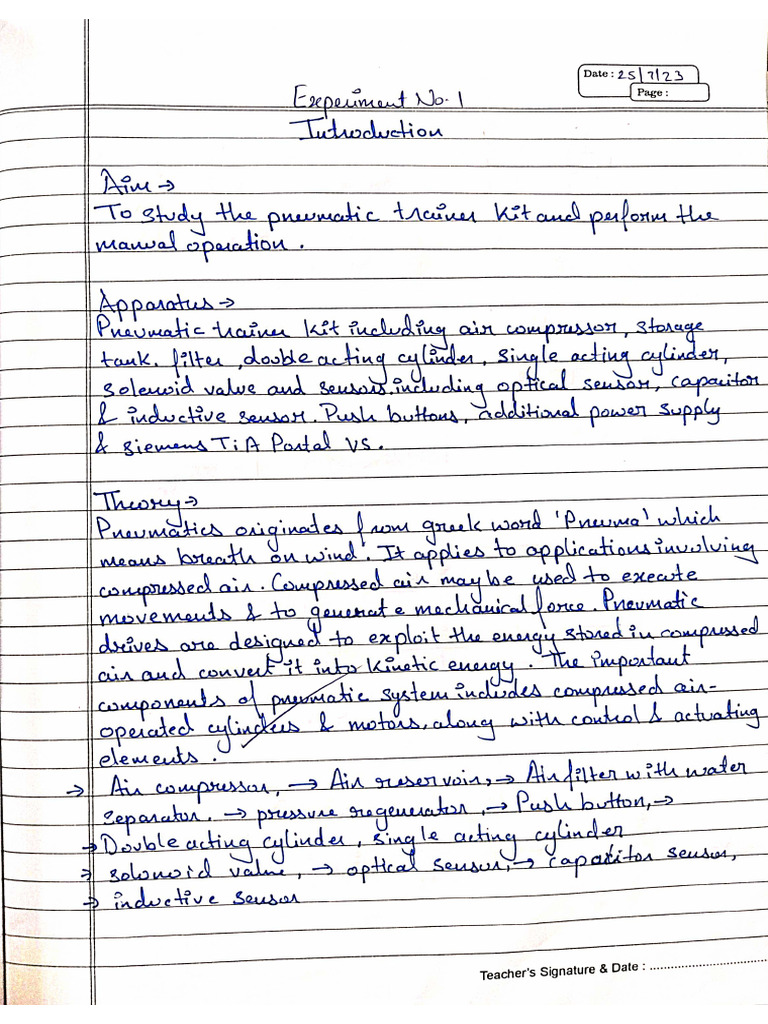 Date : 25/7/23
Page :
Experiment No. 1
Introduction
Aim →
To study the pneumatic trainer kit and perform the
manual operation.
Apparatus →
Pneumatic trainer kit including air compressor, storage
tank, filter, double acting cylinder, single acting cylinder,
solenoid valve and sensors, including optical sensor, capacitor
& inductive sensor. Push buttons, additional power supply
& siemens TiA Portal VS.
Theory →
Pneumatics originates from greek word 'Pneuma' which
means breath on wind'. It applies to applications involving
compressed air. Compressed air may be used to execute
movements & to generate mechanical force. Pneumatic
drives are designed to exploit the energy stored in compressed
air and convert it into kinetic energy. The important
components of pneumatic system includes compressed air-
operated cylinders & motors, along with control & actuating
elements.
→ Air compressor, → Air reservoir, → Air filter with water
separator. → pressure regenerator, → Push button, →
→ Double acting cylinder, single acting cylinder
→ solonoid valve, → optical sensor, → capacitor sensor,
→ inductive sensor
Teacher's Signature & Date : ..............................